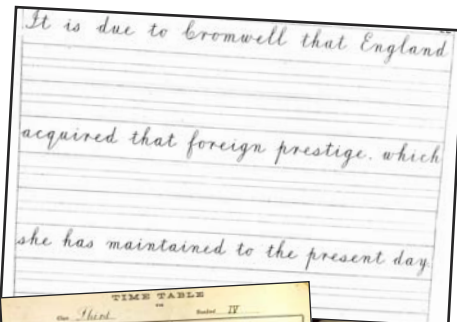 It is due to Cromwell that England
acquired that foreign prestige. which
she has maintained to the present day
TIME TABLE
FOR
Class Third Standard IV